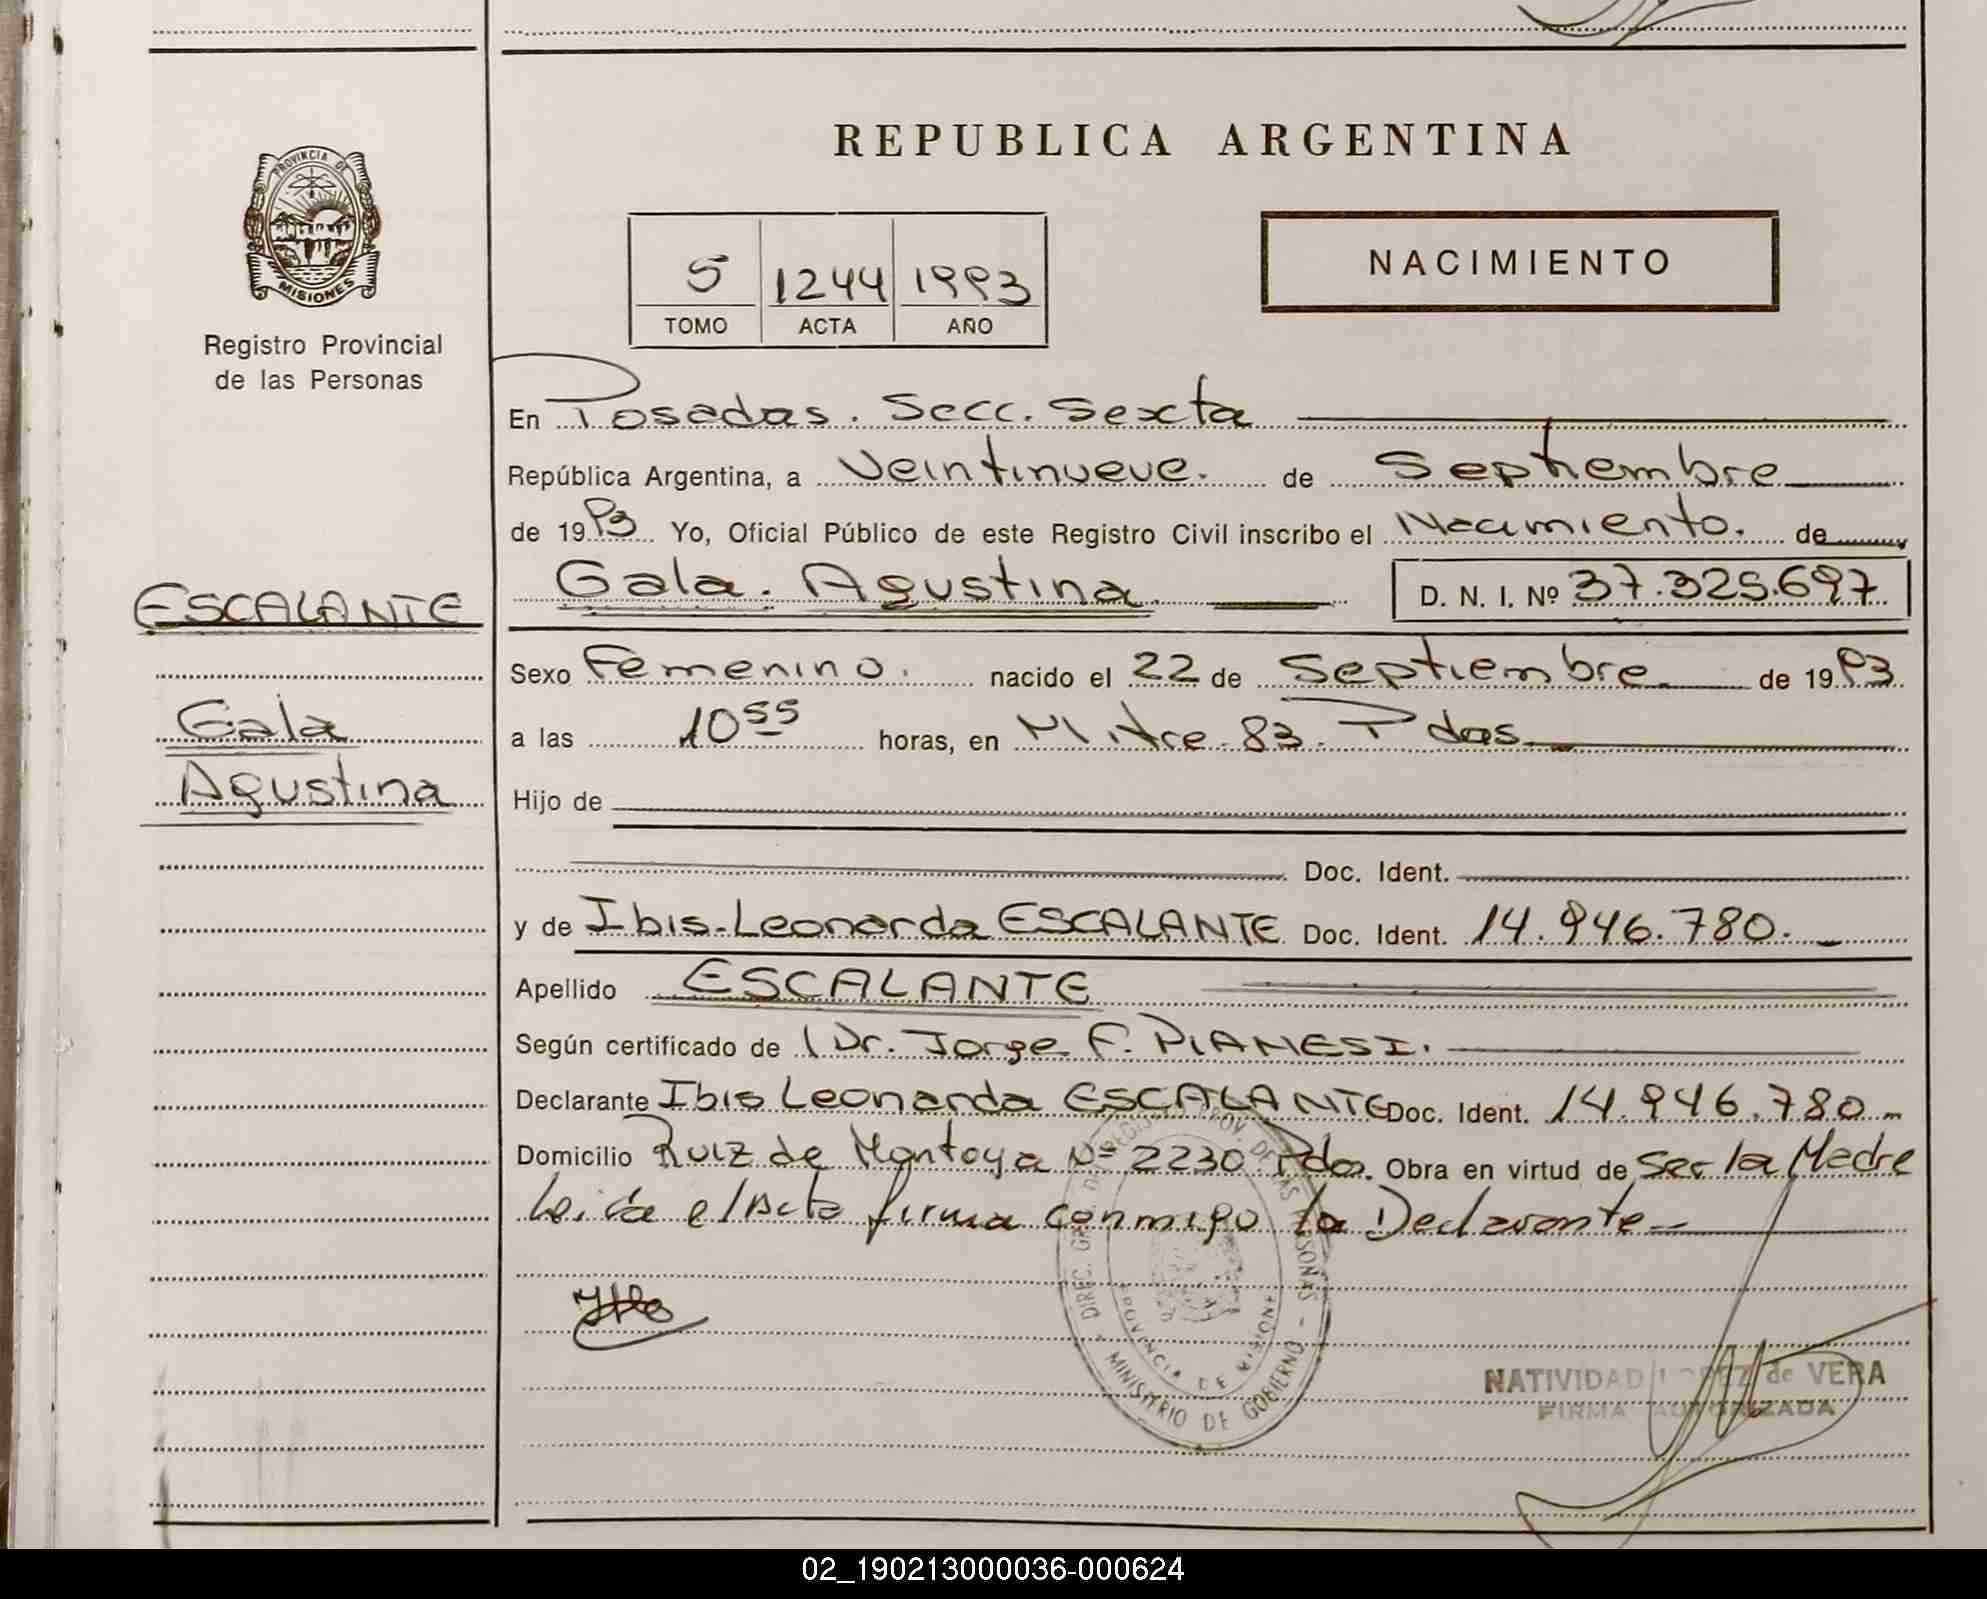 REPUBLICA ARGENTINA
PROVINCIA DE
MISIONES
Registro Provincial
de las Personas
5 1244 1993
TOMO ACTA AÑO
NACIMIENTO
En Posadas. Secc. Sexta
República Argentina, a Veintinueve. de Septiembre
de 1993 Yo, Oficial Público de este Registro Civil inscribo el Nacimiento. de
Gala. Agustina. D. N. I. Nº 37.325.697
ESCALANTE
Gala
Agustina
Sexo Femenino. nacido el 22 de Septiembre de 1993
a las 10 55 horas, en Mitre 83. Pdas
Hijo de
Doc. Ident.
y de Ibis Leonarda ESCALANTE Doc. Ident. 14.946.780.
Apellido ESCALANTE
Según certificado de Dr. Jorge F. PIANESI.
Declarante Ibis Leonarda ESCALANTE Doc. Ident. 14.946.780
Domicilio Ruiz de Montoya Nº 2230 Pdas. Obra en virtud de ser la Madre
Leída el Acta firma conmigo la Declarante
DIREC. GRAL. DEL REGISTRO PROV. DE LAS PERSONAS
PROVINCIA DE MISIONES
MINISTERIO DE GOBIERNO
NATIVIDAD LOPEZ de VERA
FIRMA AUTORIZADA
02_190213000036-000624